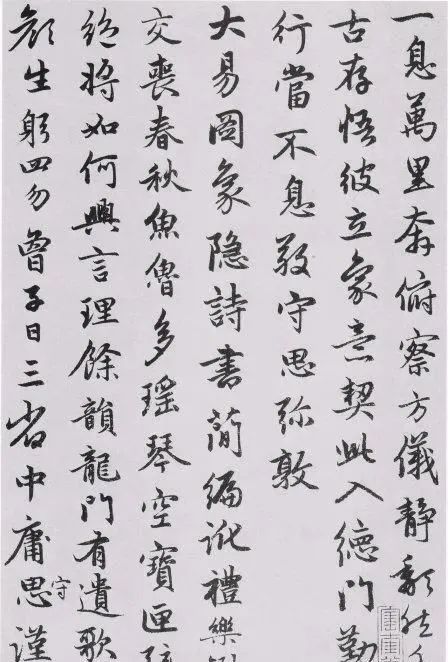 一息萬里奔俯察方儀靜頹然
古存悟彼立象意契此入德門勤
行當不息敬守思弥敦
大易圖象隱詩書簡編訛禮樂
交喪春秋魚魯多瑤琴空寶匣
絕將如何興言理餘韻龍門有遺歌
顏生躬四勿曾子日三省中庸思謹
守